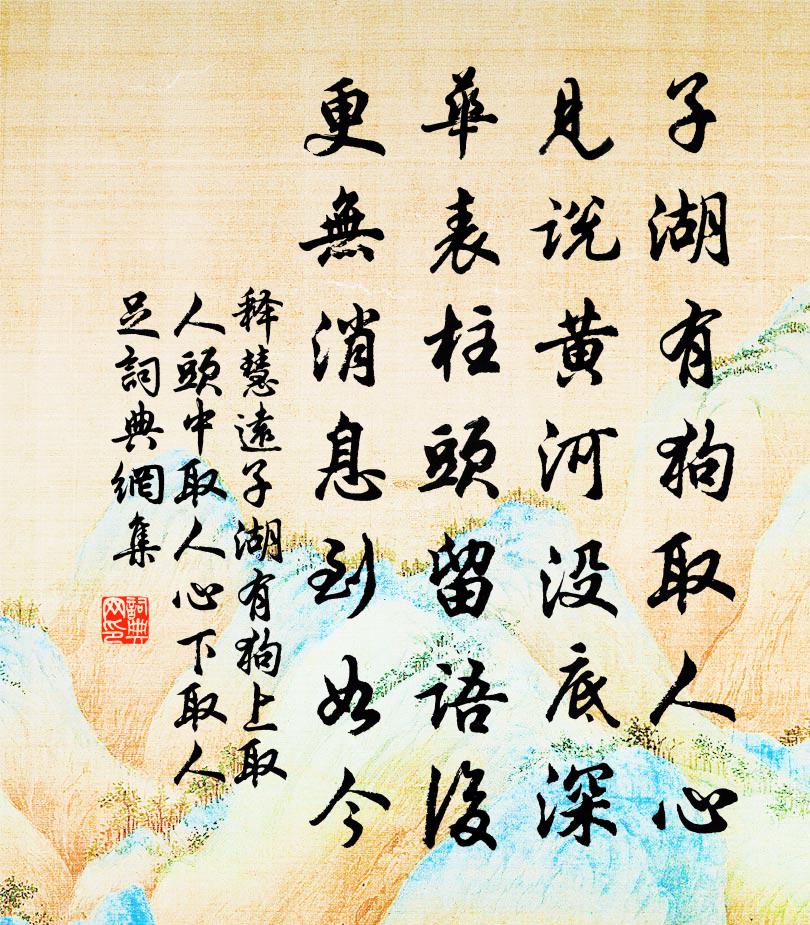 子湖有狗取人心
見說黄河没底深
華表柱頭留語後
更無消息到如今
释慧遠子湖有狗上取
人頭中取人心下取人
足詞典網集
詞典网印